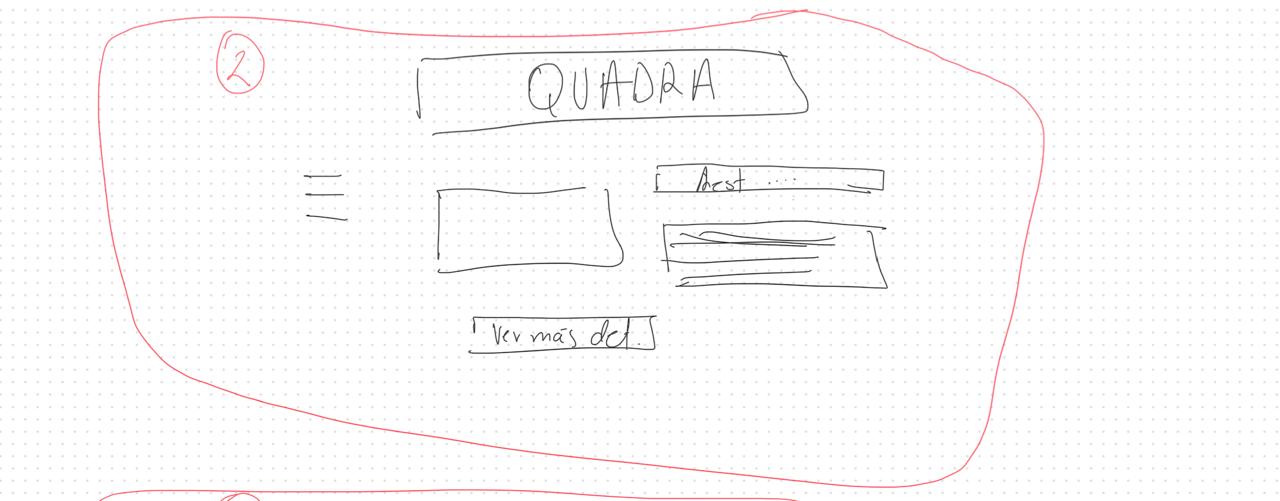 2
QUADRA
Ver más det.